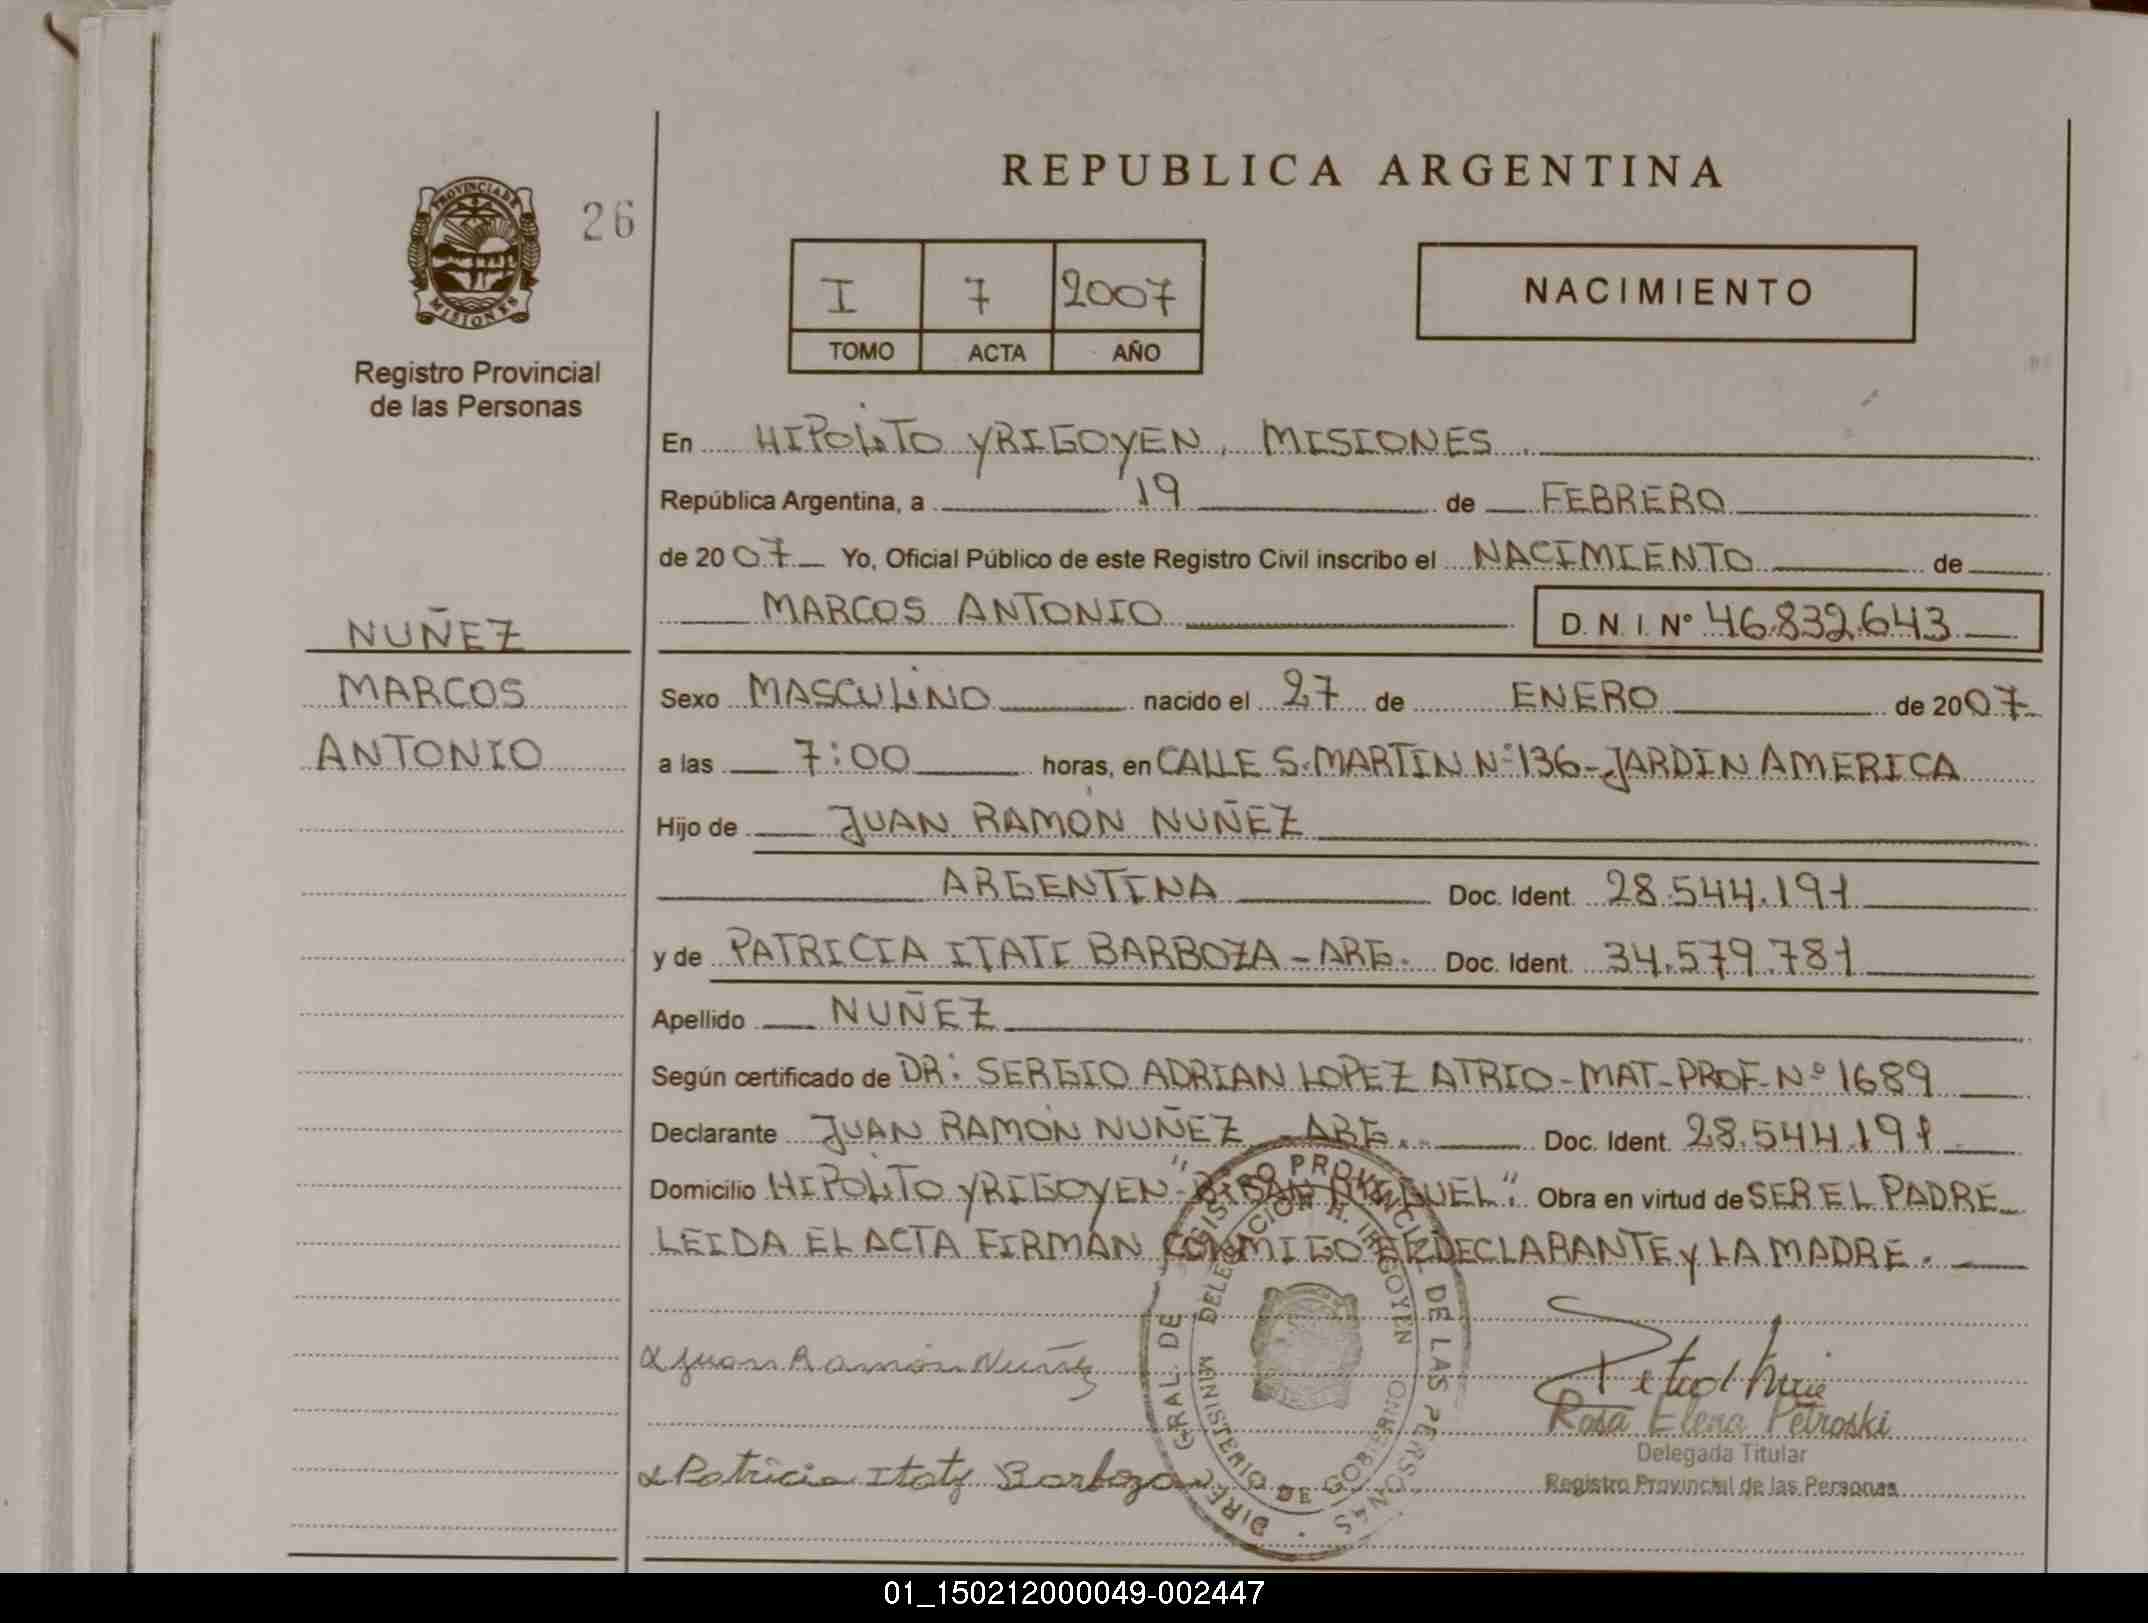 REPUBLICA ARGENTINA
PROVINCIA DE
MISIONES
26
Registro Provincial
de las Personas
I 7 2007
TOMO ACTA AÑO
NACIMIENTO
En HIPOLITO YRIGOYEN, MISIONES.
República Argentina, a 19 de FEBRERO
de 2007 Yo, Oficial Público de este Registro Civil inscribo el NACIMIENTO de
MARCOS ANTONIO D.N.I. Nº 46.832.643
NUÑEZ
MARCOS
ANTONIO
Sexo MASCULINO nacido el 27 de ENERO de 2007
a las 7:00 horas, en CALLE S. MARTIN Nº 136-JARDIN AMERICA
Hijo de JUAN RAMÓN NUÑEZ
ARGENTINA Doc. Ident. 28.544.191
y de PATRICIA ITATI BARBOZA - ARG. Doc. Ident. 34.579.781
Apellido NUÑEZ
Según certificado de DR: SERGIO ADRIAN LOPEZ ATRIO-MAT-PROF-Nº 1689
Declarante JUAN RAMÓN NUÑEZ - ARG. Doc. Ident. 28.544.191
Domicilio HIPOLITO YRIGOYEN "Bº SAN MIGUEL". Obra en virtud de SER EL PADRE
LEIDA EL ACTA FIRMAN CONMIGO EL DECLARANTE y LA MADRE.
Juan Ramón Nuñez
Patricia Itaty Barboza
DIREC. GRAL. DE REGISTRO PROVINCIAL DE LAS PERSONAS
DELEGACION H. IRIGOYEN
MINISTERIO DE GOBIERNO
Rosa Elena Petroski
Delegada Titular
Registro Provincial de las Personas
01_150212000049-002447